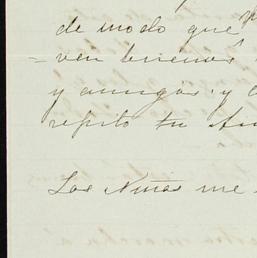 de modo que
ven buenos
y amigos y
repito tu
Las Niñas me